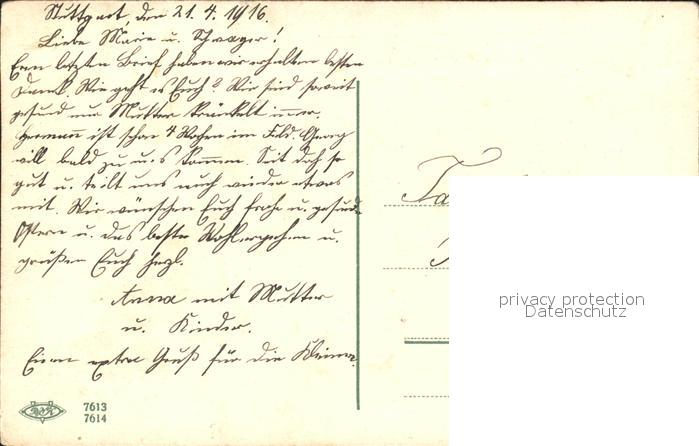 Stuttgart, den 21. 4. 1916.
Liebe Marie u. Schwager!
Euern letzten Brief haben wir erhalten besten
Dank. Wie geht es Euch? Wir sind soweit
gesund nur Mutter kränkelt immer.
Hermann ist schon 4 Wochen im Feld. Georg
will bald zu uns kommen. Seit doch so
gut u. teilt uns auch wieder etwas
mit. Wir wünschen Euch frohe u. gesunde
Ostern u. das beste Wohlergehen u.
grüßen Euch herzl.
Anna mit Mutter
u. Kinder.
Einen extra Gruß für die Kleinen.
7613
7614
privacy protection
Datenschutz